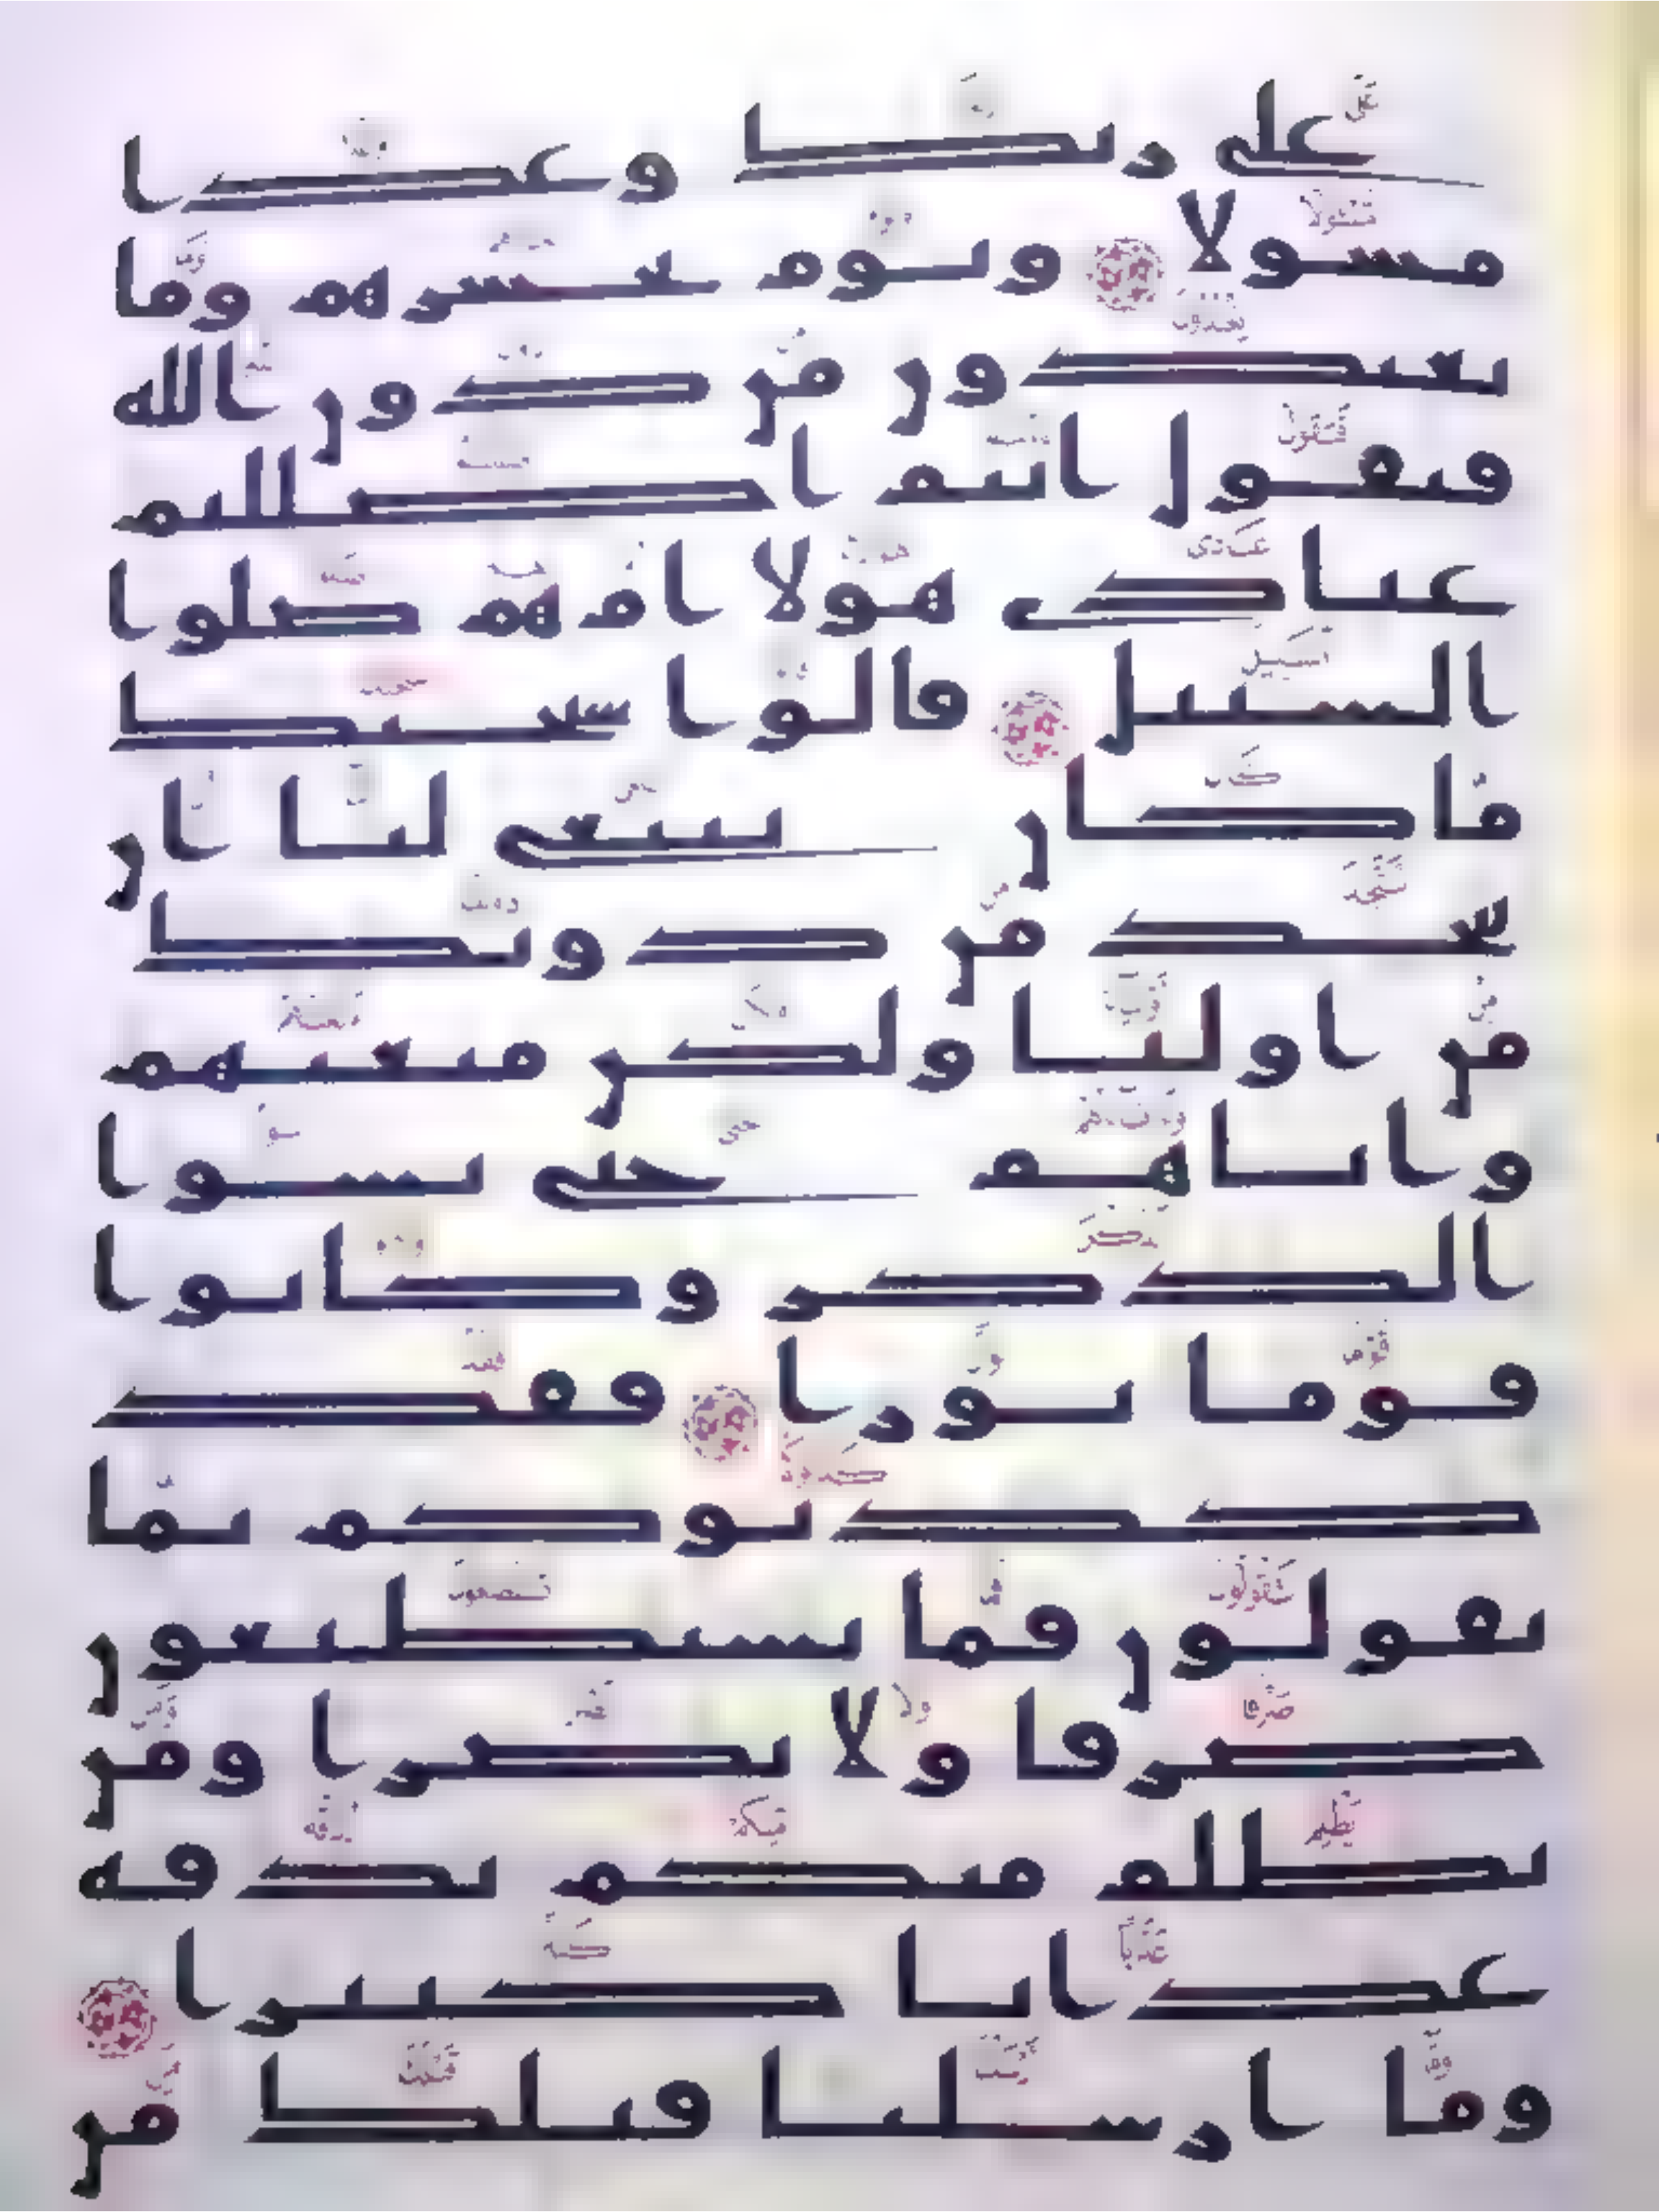 على ربك وعدا
مسولا ويوم يحشرهم وما
يعبدون من دون الله
فيقول انتم اضللتم
عبادي هولا ام هم ضلوا
السبيل قالوا سبحنك
ما كان ينبغي لنا ان
نتخذ من دونك
من اوليا ولكن متعتهم
واباهم حتى نسوا
الذكر وكانوا
قوما بورا فقد
كذبوكم بما
تقولون فما تستطيعون
صرفا ولا نصرا ومن
يظلم منكم نذقه
عذابا كبيرا
وما ارسلنا قبلك من